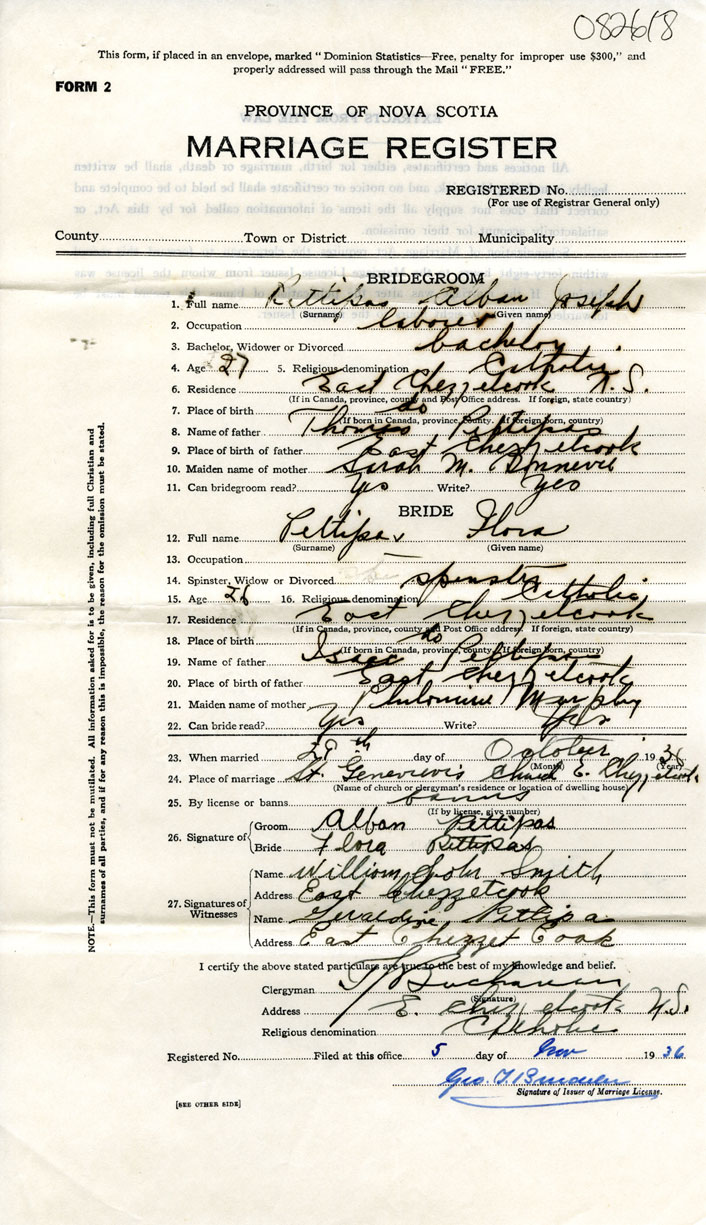 082618
This form, if placed in an envelope, marked "Dominion Statistics—Free, penalty for improper use $300," and
properly addressed will pass through the Mail "FREE."
FORM 2
PROVINCE OF NOVA SCOTIA
MARRIAGE REGISTER
REGISTERED No.
(For use of Registrar General only)
County Town or District Municipality
BRIDEGROOM
1. Full name Pettipas Alban Joseph
(Surname) (Given name)
2. Occupation laborer
3. Bachelor, Widower or Divorced bachelor
4. Age 27 5. Religious denomination Catholic
6. Residence East Chezzetcook N.S.
(If in Canada, province, county and Post Office address. If foreign, state country)
7. Place of birth do
(If born in Canada, province, county. If foreign born, country)
8. Name of father Thomas Pettipas
9. Place of birth of father East Chezzetcook
10. Maiden name of mother Sarah M.
11. Can bridegroom read? Yes Write? Yes
BRIDE
12. Full name Pettipas Flora
(Surname) (Given name)
13. Occupation
14. Spinster, Widow or Divorced spinster
15. Age 26 16. Religious denomination Catholic
17. Residence East Chezzetcook
(If in Canada, province, county and Post Office address. If foreign, state country)
18. Place of birth do
(If born in Canada, province, county. If foreign born, country)
19. Name of father Isaac Pettipas
20. Place of birth of father East Chezzetcook
21. Maiden name of mother Murphy
22. Can bride read? Yes Write? Yes
23. When married 29th day of October 1936
(Month) (Year)
24. Place of marriage St. Genevieve's Church E. Chezzetcook
(Name of church or clergyman's residence or location of dwelling house)
25. By license or banns banns
(If by license, give number)
26. Signature of Groom Alban Pettipas
Bride Flora Pettipas
27. Signatures of Witnesses Name William John Smith
Address East Chezzetcook
Name Geraldine Pettipas
Address East Chezzet Cook
I certify the above stated particulars are true to the best of my knowledge and belief.
Clergyman Buchanan
(Signature)
Address E. Chezzetcook N.S.
Religious denomination Catholic
Registered No. Filed at this office 5 day of Nov 1936
Geo.
Signature of Issuer of Marriage License.
[SEE OTHER SIDE]
NOTE.—This form must not be mutilated. All information asked for is to be given, including full Christian and
surnames of all parties, and if for any reason this is impossible, the reason for the omission must be stated.